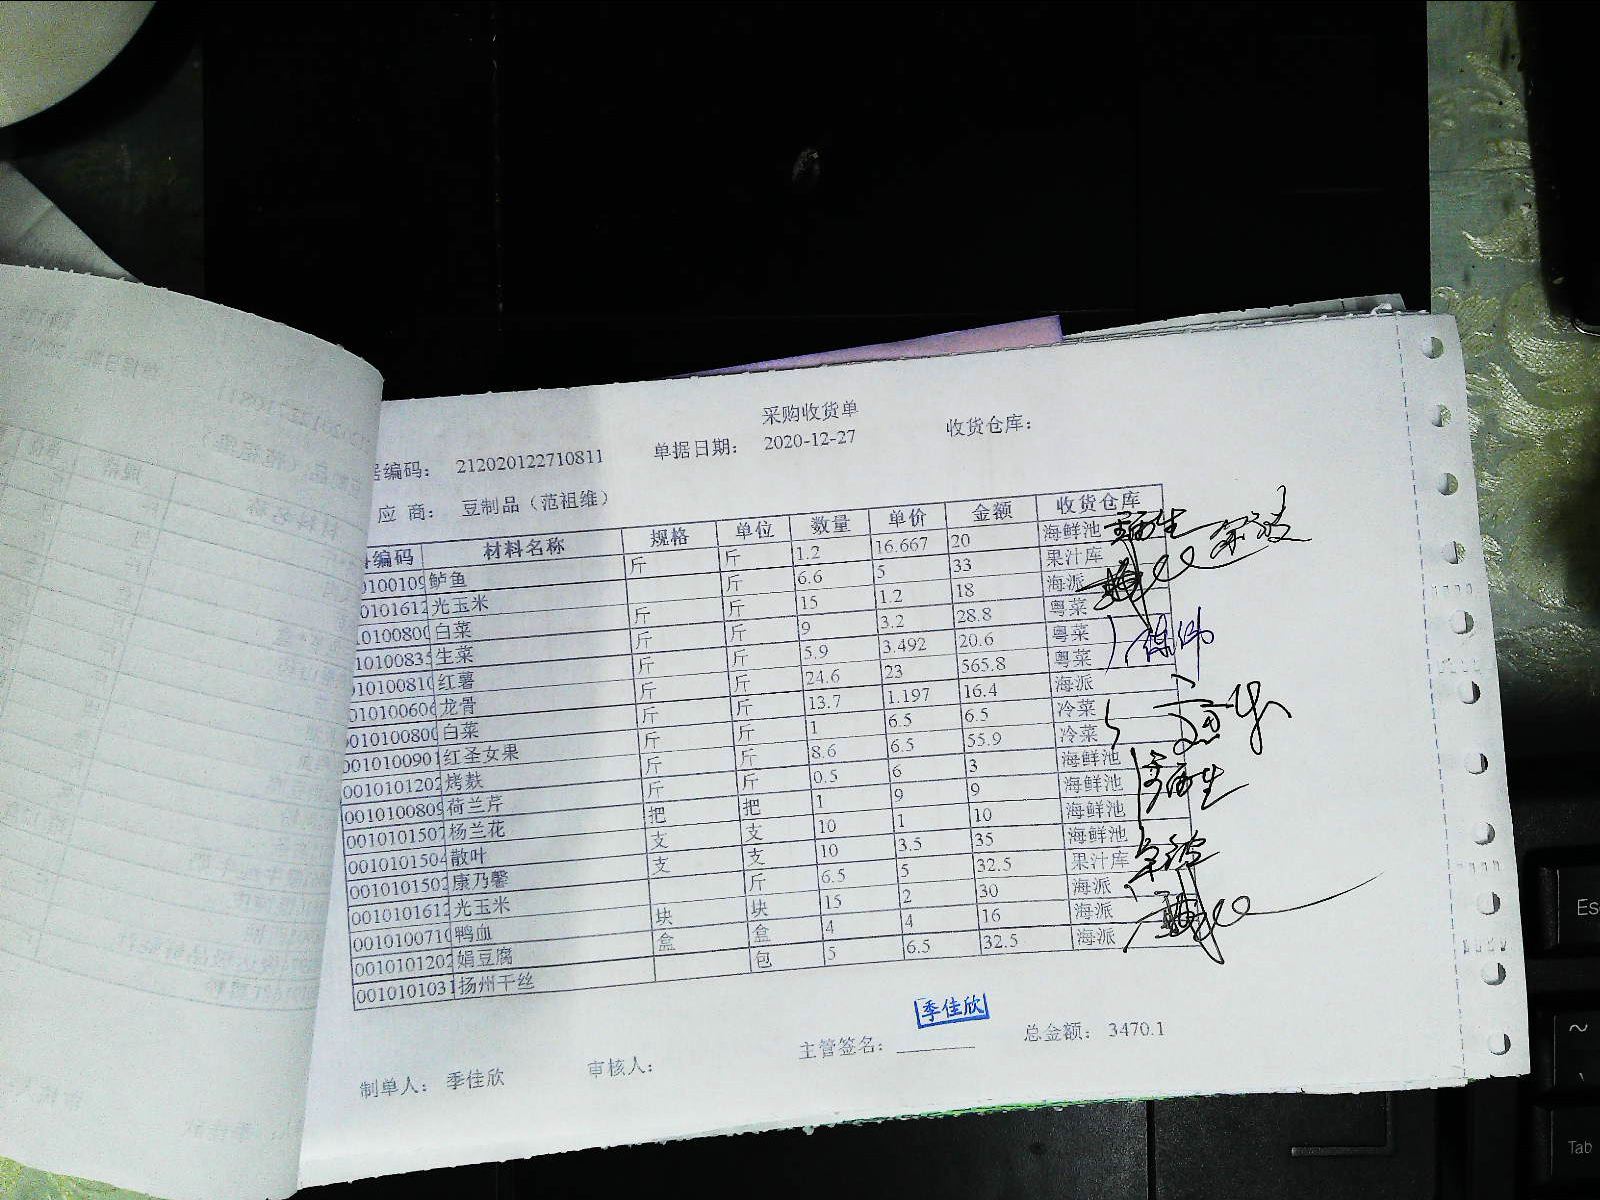 采购收货单
编码： 212020122710811 单据日期： 2020-12-27 收货仓库：
应 商： 豆制品（范祖维）
编码 材料名称 规格 单位 数量 单价 金额 收货仓库
0100109 鲈鱼 斤 斤 1.2 16.667 20 海鲜池
0101612 光玉米 斤 6.6 5 33 果汁库
10100800 白菜 斤 斤 15 1.2 18 海派
10100835 生菜 斤 斤 9 3.2 28.8 粤菜
10100810 红薯 斤 斤 5.9 3.492 20.6 粤菜
010100606 龙骨 斤 斤 24.6 23 565.8 粤菜
0010100800 白菜 斤 斤 13.7 1.197 16.4 海派
0010100901 红圣女果 斤 斤 1 6.5 6.5 冷菜
0010101202 烤麸 斤 斤 8.6 6.5 55.9 冷菜
0010100809 荷兰芹 斤 斤 0.5 6 3 海鲜池
0010101507 杨兰花 把 把 1 9 9 海鲜池
0010101504 散叶 支 支 10 1 10 海鲜池
0010101502 康乃馨 支 支 10 3.5 35 海鲜池
0010101612 光玉米 斤 6.5 5 32.5 果汁库
0010100710 鸭血 块 块 15 2 30 海派
0010101202 娟豆腐 盒 盒 4 4 16 海派
0010101031 扬州干丝 包 5 6.5 32.5 海派
季佳欣
制单人： 季佳欣 审核人： 主管签名： 总金额： 3470.1
Esc
~
Tab